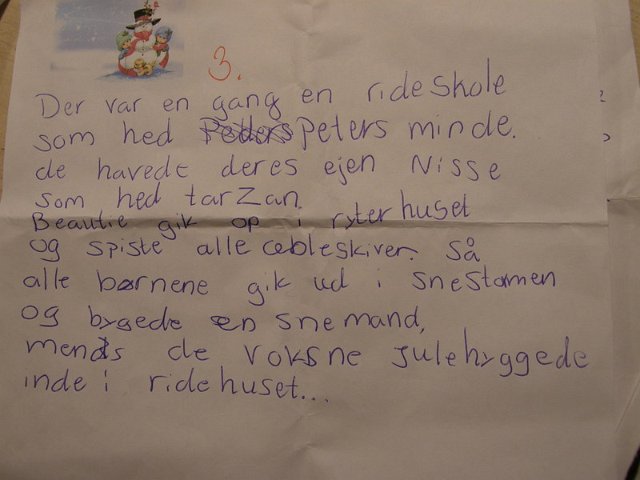 3.
Der var en gang en rideskole
som hed Peters minde.
de havede deres ejen Nisse
som hed tarzan.
Beautie gik op i rytterhuset
og spiste alle æbleskiver. Så
alle børnene gik ud i snestormen
og bygede en snemand,
mends de voksne julehyggede
inde i ridehuset...